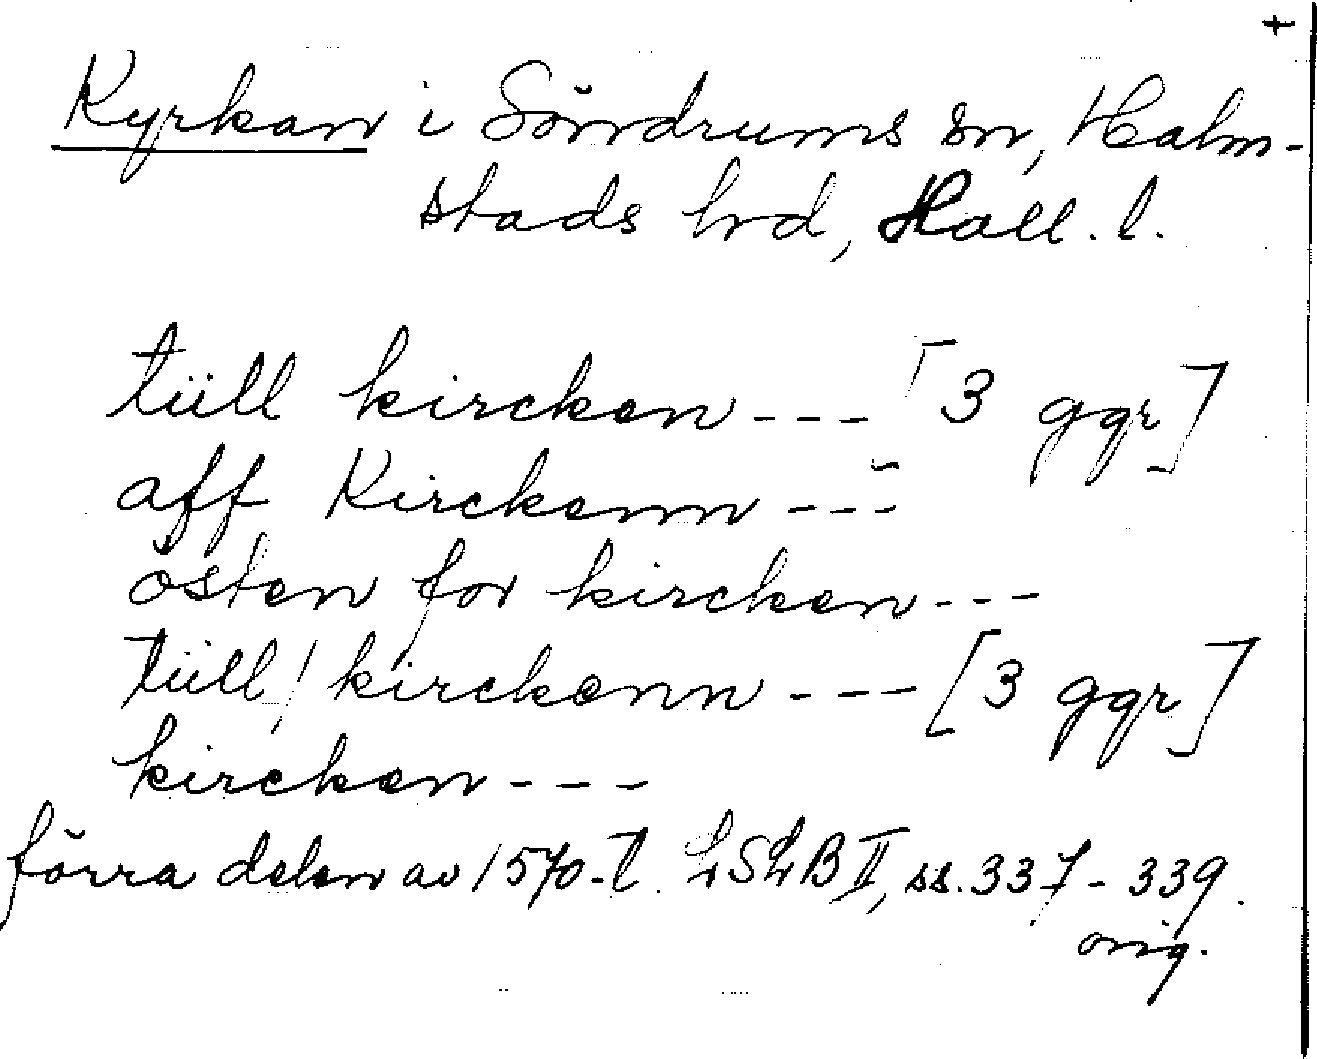 +
Kyrkan i Söndrums sn, Halm-
stads hrd, Hall. l.
tüll kircken --- [3 ggr]
aff Kirckenn ---
östen for kircken ---
tüll! kirckenn --- [3 ggr]
kircken ---
förra delen av 1570-t. LSLB II, ss. 337-339.
orig.